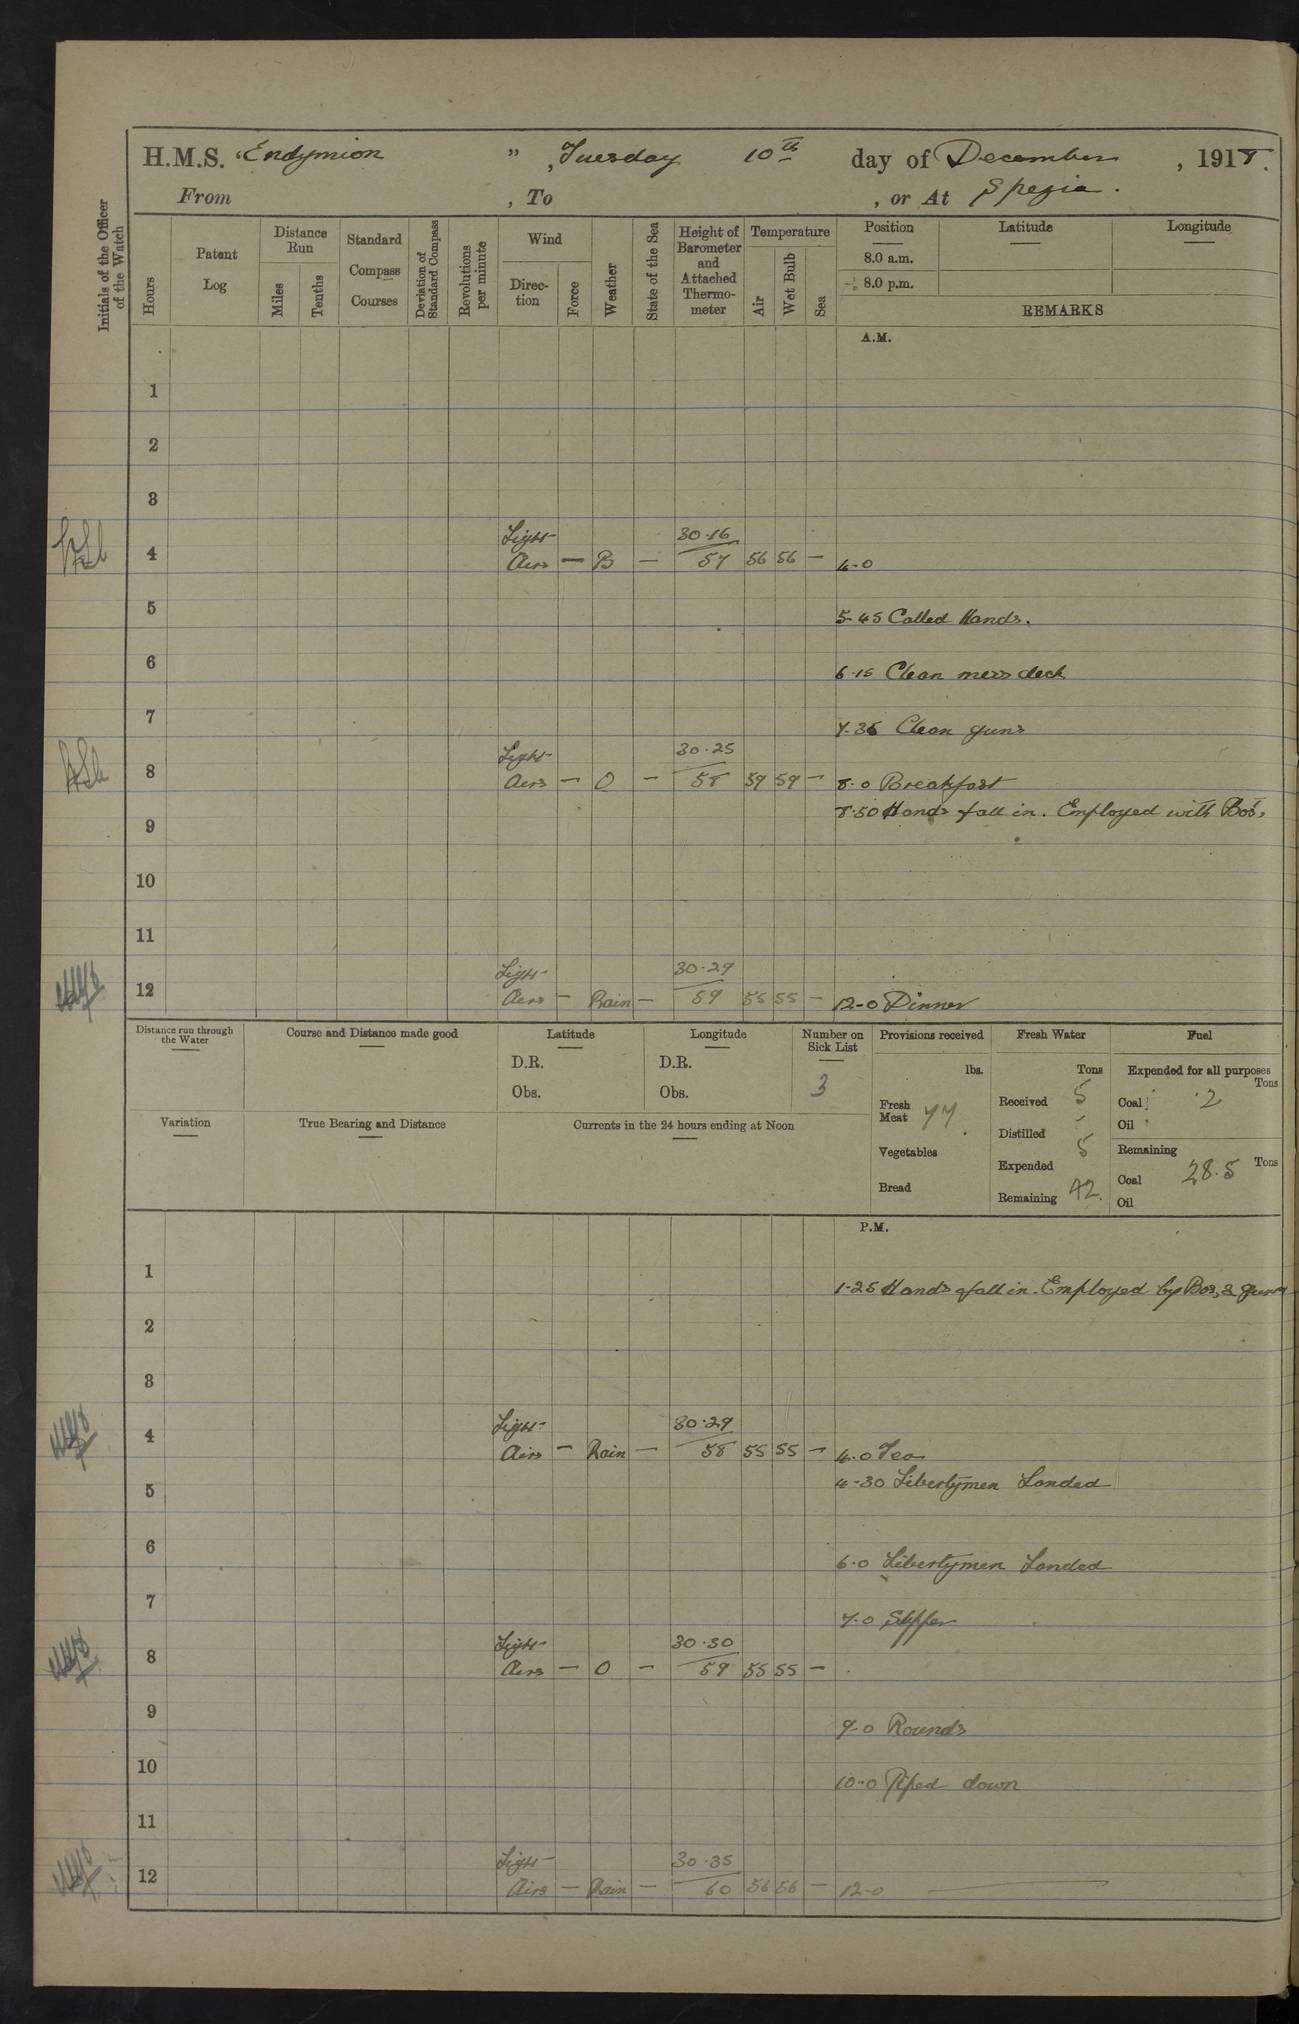 H.M.S. "Endymion", Tuesday 10th day of December, 1918.
From , To , or At Spezia.
Initials of the Officer of the Watch
Hours
Patent Log
Distance Run
Miles
Tenths
Standard Compass Courses
Deviation of Standard Compass
Revolutions per minute
Wind
Direction
Force
Weather
State of the Sea
Height of Barometer and Attached Thermometer
Temperature
Air
Wet Bulb
Sea
Position
8.0 a.m.
8.0 p.m.
Latitude
Longitude
REMARKS
A.M.
1
2
3
Light 30.16
4 Airs — B — 57 56 56 — 4-0
5 5-45 Called Hands.
6 6-15 Clean mess deck
7 7-35 Clean guns
Light 30.25
8 Airs — O — 58 59 59 — 8.0 Breakfast
8.50 Hands fall in. Employed with Bos,
9
10
11
Light 30.29
12 Airs — Rain — 59 55 55 — 12-0 Dinner
Distance run through the Water
Course and Distance made good
Latitude
D.R.
Obs.
Longitude
D.R.
Obs.
Number on Sick List
3
Provisions received
lbs.
Fresh Meat 77
Vegetables
Bread
Fresh Water
Tons
Received 5
Distilled -
Expended 5
Remaining 42.
Fuel
Expended for all purposes
Tons
Coal .2
Oil
Remaining
Tons
Coal 28.5
Oil
Variation
True Bearing and Distance
Currents in the 24 hours ending at Noon
P.M.
1 1-25 Hands fall in. Employed by Bos, &
2
3
Light 30.29
4 Airs — Rain — 58 55 55 — 4.0 Tea
4-30 Libertymen Landed
5
6 6.0 Libertymen Landed
7 7.0 Supper
Light 30.30
8 Airs — O — 59 55 55 —
9 9-0 Rounds
10 10-0 Piped down
11
Light 30.35
12 Airs — Rain — 60 56 56 — 12-0